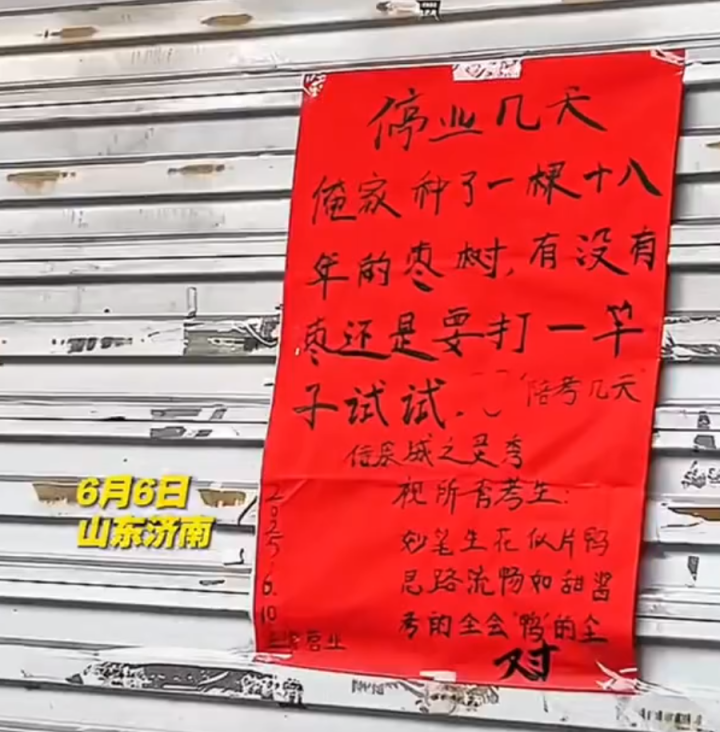 停业几天
俺家种了一棵十八
年的枣树，有没有
枣还是要打一竿
子试试.
"陪考几天"
泉城之灵秀
祝所有考生：
妙笔生花似片鸭
思路流畅如甜酱
考的全会"鸭"的全
对
2025.6.10
营业
6月6日
山东济南